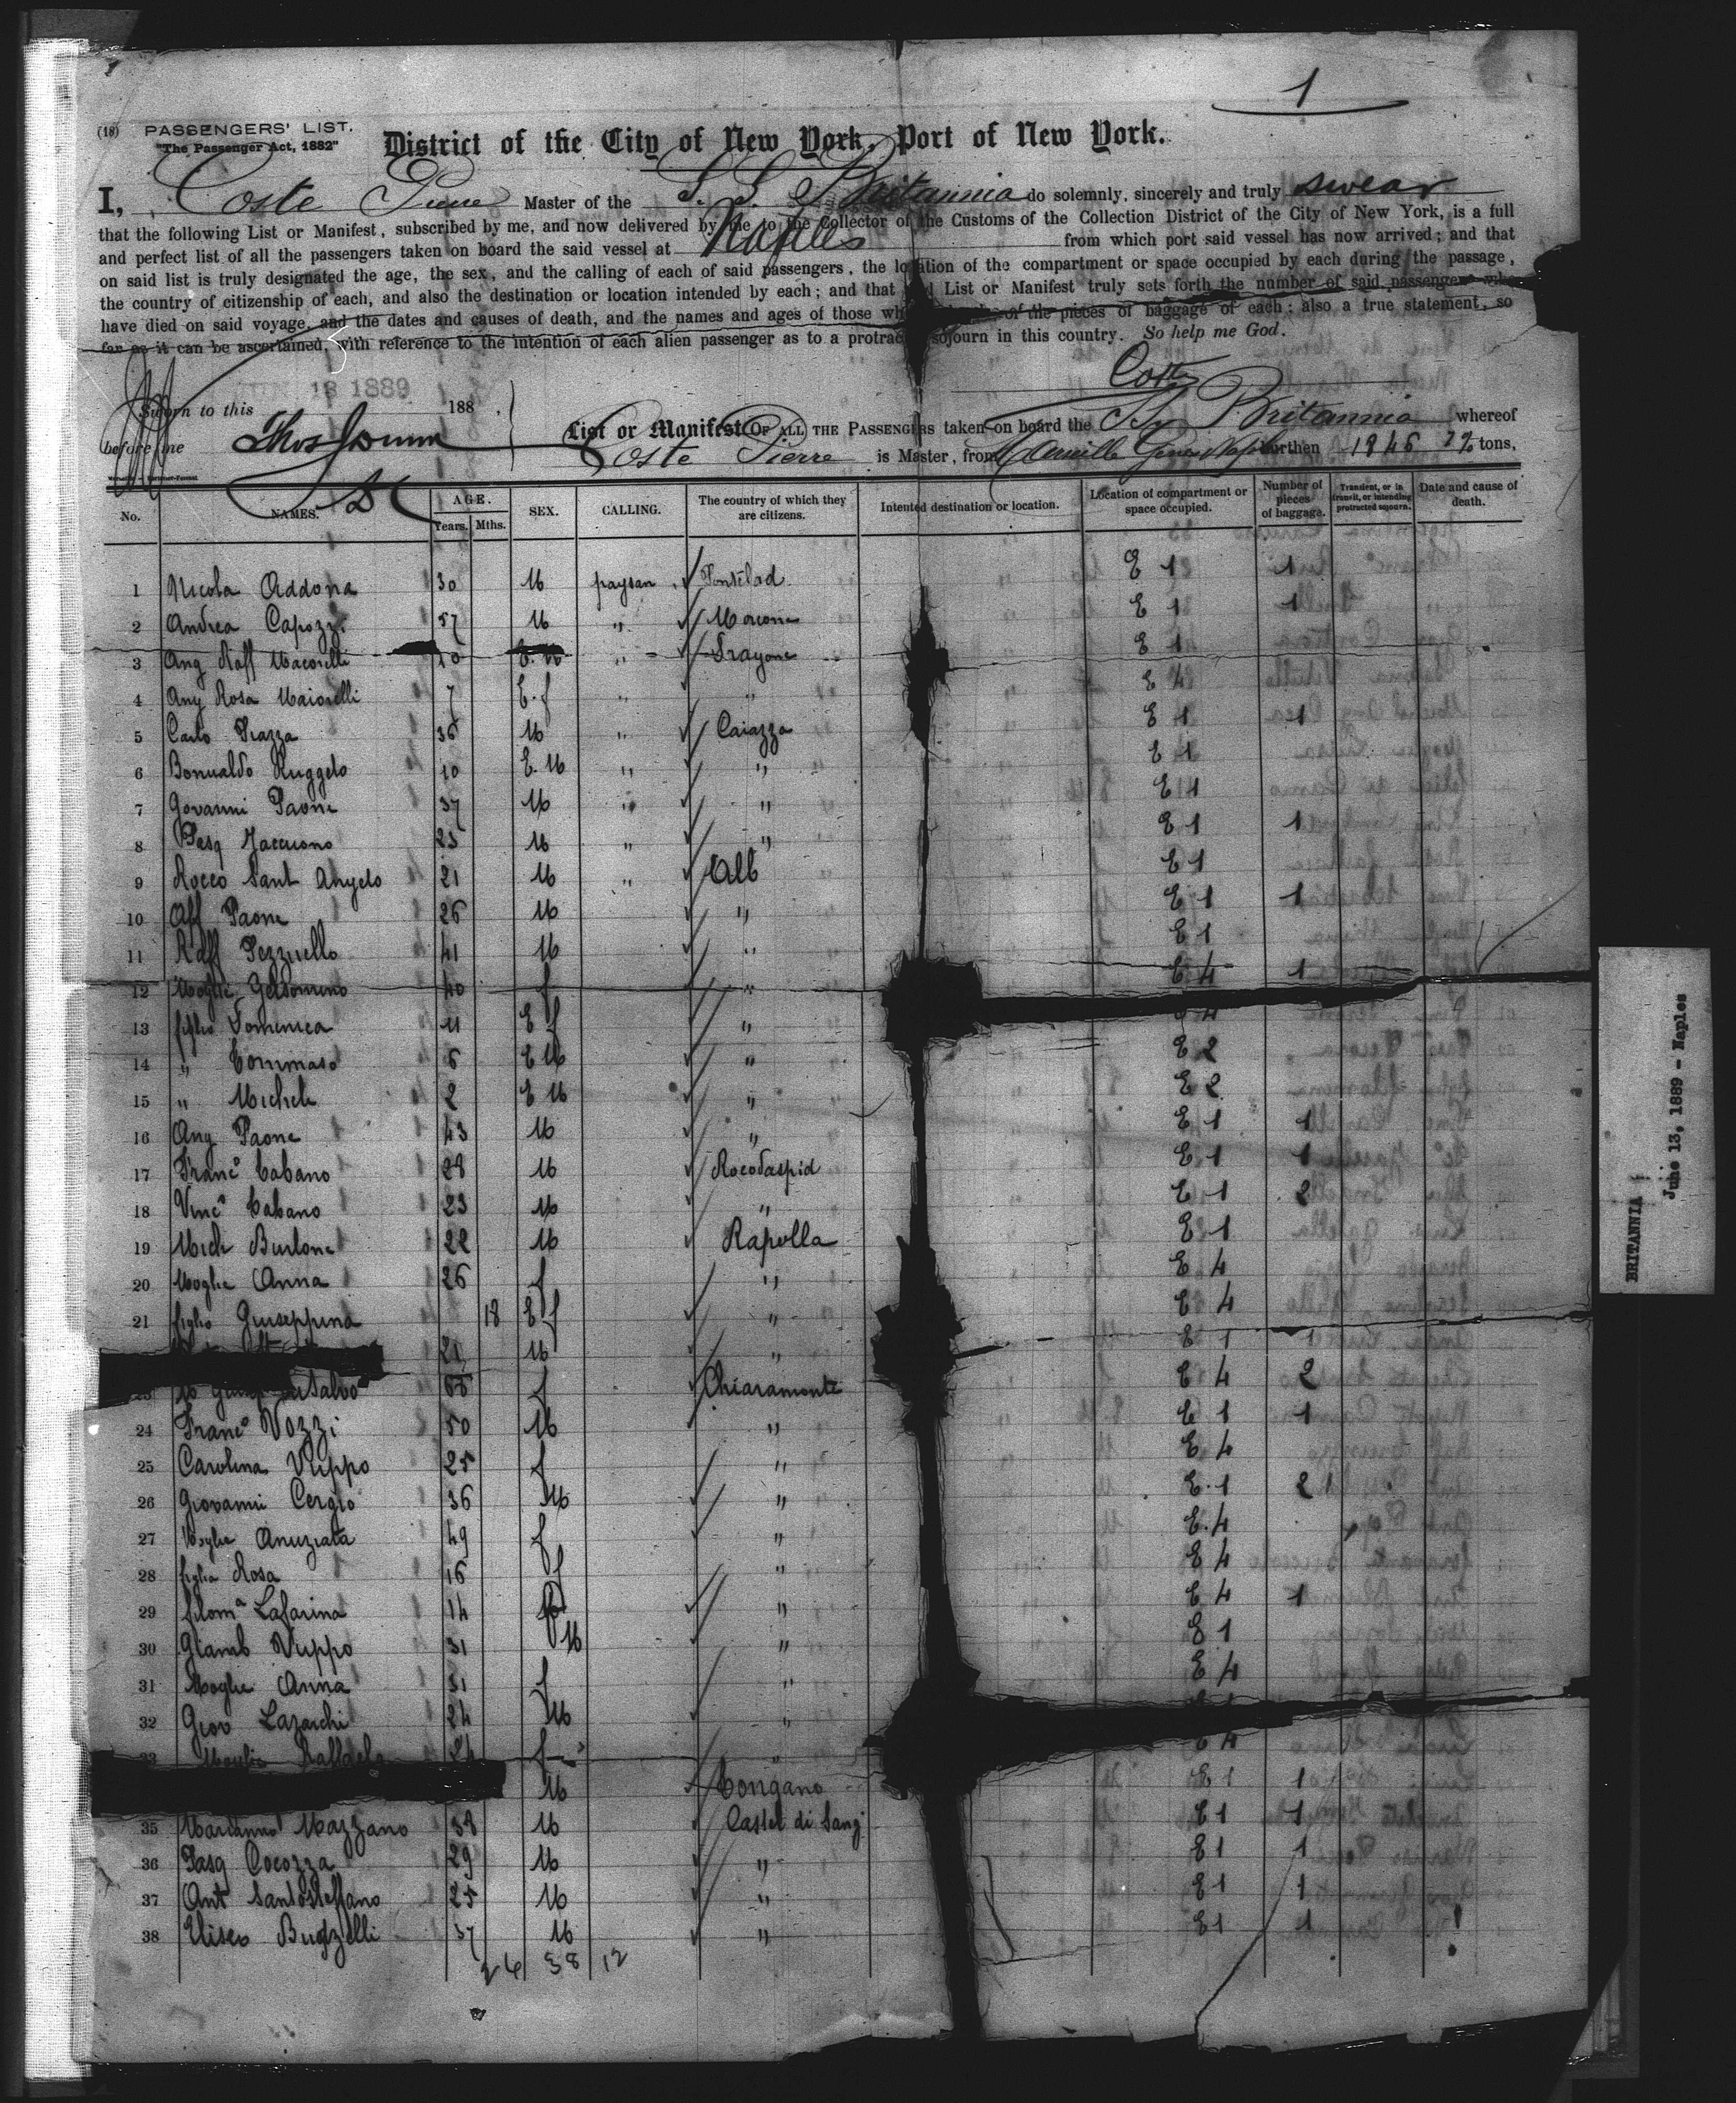 1
(18) PASSENGERS' LIST.
"The Passenger Act, 1882"
District of the City of New York, Port of New York.
I, Coste Pierre Master of the S. S. Britannia do solemnly, sincerely and truly swear
that the following List or Manifest, subscribed by me, and now delivered by me to the Collector of the Customs of the Collection District of the City of New York, is a full
and perfect list of all the passengers taken on board the said vessel at Naples from which port said vessel has now arrived; and that
on said list is truly designated the age, the sex, and the calling of each of said passengers, the location of the compartment or space occupied by each during the passage,
the country of citizenship of each, and also the destination or location intended by each; and that List or Manifest truly sets forth the number of said passengers who
have died on said voyage, and the dates and causes of death, and the names and ages of those of the pieces of baggage of each; also a true statement, so
far as it can be ascertained, with reference to the intention of each alien passenger as to a protracted sojourn in this country. So help me God.
Coste
18 1889
Sworn to this 188 ,
before me
List or Manifest OF ALL THE PASSENGERS taken on board the Britannia whereof
Coste Pierre is Master, from burthen 1846 tons,
No. NAMES. AGE. Years. Mths. SEX. CALLING. The country of which they are citizens. Intented destination or location. Location of compartment or space occupied. Number of pieces of baggage. Transient, or in transit, or intending protracted sojourn. Date and cause of death.
1 Nicola Addona 30 M paysan E 1 1
2 Andrea Capozzi 57 M " Morcone E 1 1
3 Ang Raff " E 1
4 Ang Rosa Maiorelli 7 E. f " " E 4
5 Carlo 36 M " Caiazza E 1 1
6 10 E. M " " E 1
7 Govanni Paone 37 M " " E 1
8 Pasq 23 M " " E 1 1
9 Rocco Sant Angelo 21 M " Alb E 1
10 Alf Paone 26 M " E 1 1
11 Raff Pezzuello 41 M " E 1
12 Moglie 40 f " E 4 1
13 figlia Domenica 11 E f " 4
14 " Tommaso 6 E M " E 2
15 " Michele 2 E M " E 2
16 Ang Paone 43 M " E 1 1
17 Franc° Cabano 28 M Rocodaspid E 1 1
18 Vinc° Cabano 23 M " E 1 2
19 Mich Burlone 22 M Rapolla E 1
20 Moglie Anna 26 f " E 4
21 figlia Giuseppina 18 E f " E 4
21 M " E 1 1
23 f Chiaramonte E 4 2
24 Franc° Vozzi 50 M " E 1 1
25 Carolina Viuppo 25 f " E 4
26 Giovanni Cergio 36 M " E. 1 2 1
27 Moglie Anuziata 49 f " E. 4
28 figlia Rosa 16 f " E 4
29 filom a Lafarina 14 " E 4 1
30 Giamb Viuppo 31 M " E 1
31 Moglie Anna 31 f " E 4
32 Giov 24 M "
33 Moglie Raffaela f " E 4
M E 1 1
35 Mazzano 38 M Castel di Sang E 1 1
36 Pasq Cocozza 29 M " E 1 1
37 Ant Santostefano 25 M " E 1 1
38 Eliseo 37 M " E 1 1
38 12
BRITANNIA
June 13, 1889 - Naples